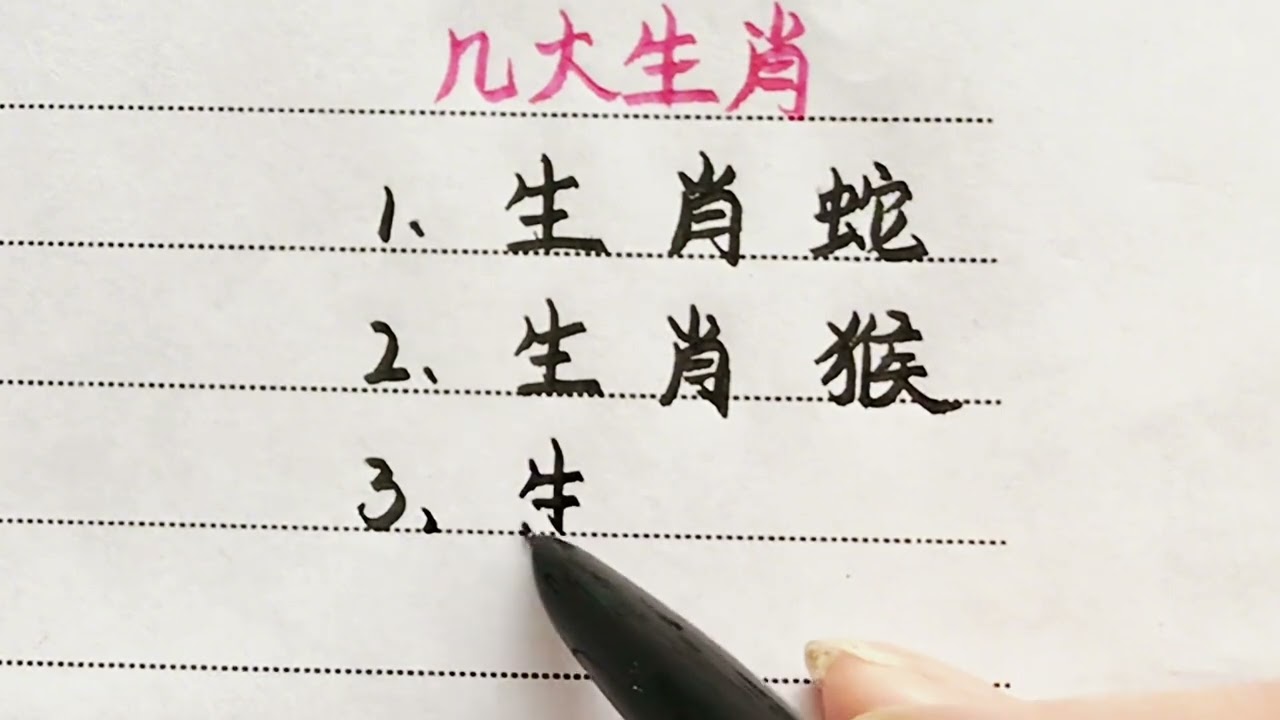 几大生肖
1、生肖蛇
2、生肖猴
3、生